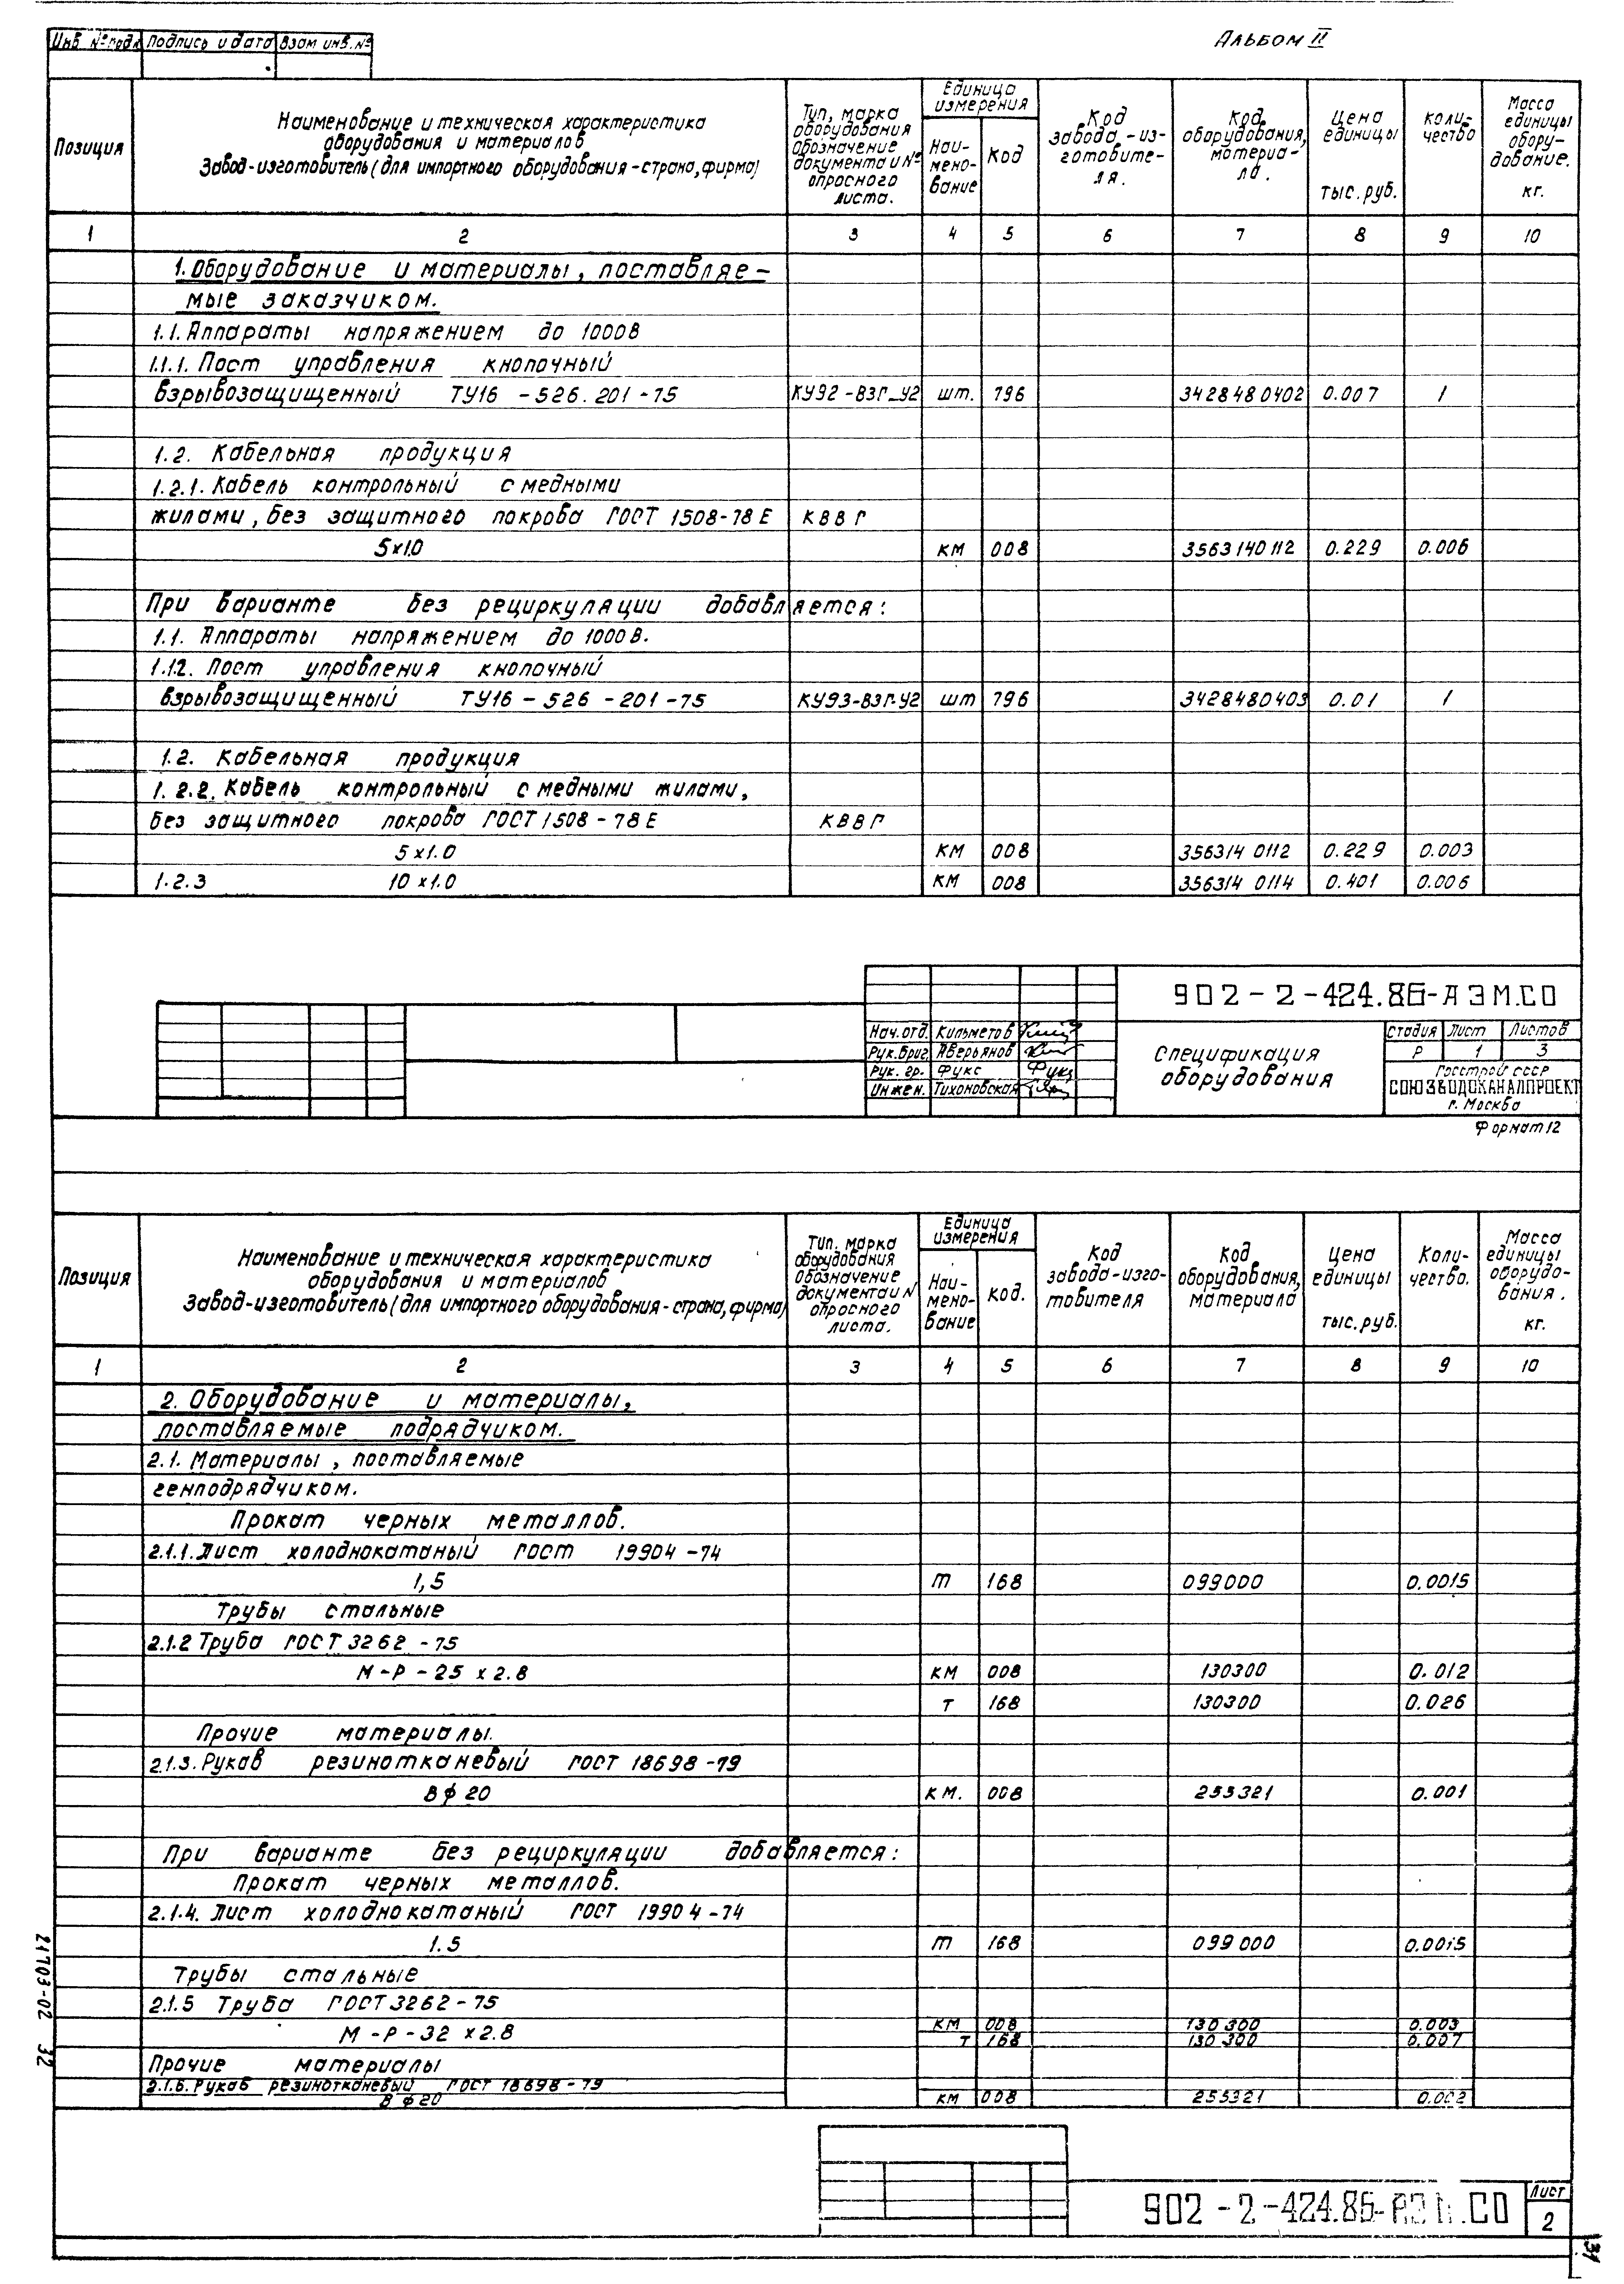 Альбом II
Инв. № подл. Подпись и дата Взам инв. №
Позиция
Наименование и техническая характеристика
оборудования и материалов
Завод-изготовитель (для импортного оборудования - страна, фирма)
Тип, марка
оборудования
Обозначение
документа и №
опросного
листа.
Единица
измерения
Наи-
мено-
вание
Код
Код
завода-из-
готовите-
ля.
Код
оборудования,
материа-
ла.
Цена
единицы
тыс. руб.
Коли-
чество
Масса
единицы
обору-
дование.
кг.
1 2 3 4 5 6 7 8 9 10
1. Оборудование и материалы, поставляе-
мые заказчиком.
1.1. Аппараты напряжением до 1000В
1.1.1. Пост управления кнопочный
взрывозащищенный ТУ16-526.201-75 КУ92-ВЗГ-У2 шт. 796 3428480402 0.007 1
1.2. Кабельная продукция
1.2.1. Кабель контрольный с медными
жилами, без защитного покрова ГОСТ 1508-78Е КВВГ
5х1.0 км 008 3563140112 0.229 0.006
При варианте без рециркуляции добавляется:
1.1. Аппараты напряжением до 1000В.
1.12. Пост управления кнопочный
взрывозащищенный ТУ16-526-201-75 КУ93-ВЗГ-У2 шт 796 3428480403 0.01 1
1.2. Кабельная продукция
1.2.2. Кабель контрольный с медными жилами,
без защитного покрова ГОСТ 1508-78Е КВВГ
5х1.0 км 008 356314 0112 0.229 0.003
1.2.3 10х1.0 км 008 356314 0114 0.401 0.006
902-2-424.86-АЭМ.СО
Нач. отд. Кильметов
Рук. бриг. Аверьянов
Рук. гр. Фукс Фукс
Инжен. Тихоновская
Спецификация
оборудования
Стадия Лист Листов
Р 1 3
Госстрой СССР
СОЮЗВОДОКАНАЛПРОЕКТ
г. Москва
Формат 12
Позиция
Наименование и техническая характеристика
оборудования и материалов
Завод-изготовитель (для импортного оборудования - страна, фирма)
Тип, марка
оборудования
Обозначение
документа и N
опросного
листа.
Единица
измерения
Наи-
мено-
вание
Код.
Код
завода-изго-
товителя
Код
оборудования,
материала
Цена
единицы
тыс. руб.
Коли-
чество.
Масса
единицы
оборудо-
вания.
кг.
1 2 3 4 5 6 7 8 9 10
2. Оборудование и материалы,
поставляемые подрядчиком.
2.1. Материалы, поставляемые
генподрядчиком.
Прокат черных металлов.
2.1.1. Лист холоднокатаный ГОСТ 19904-74
1,5 т 168 099000 0.0015
Трубы стальные
2.1.2 Труба ГОСТ 3262-75
М-Р-25 х 2.8 км 008 130300 0.012
т 168 130300 0.026
Прочие материалы.
2.1.3. Рукав резинотканевый ГОСТ 18698-79
В ϕ 20 км. 008 255321 0.001
При варианте без рециркуляции добавляется:
Прокат черных металлов.
2.1.4. Лист холоднокатаный ГОСТ 19904-74
1.5 т 168 099 000 0.0015
Трубы стальные
2.1.5 Труба ГОСТ 3262-75
М-Р-32 х 2.8 км 008 130 300 0.003
т 168 130 300 0.007
Прочие материалы
2.1.6. Рукав резинотканевый ГОСТ 18698-79
В ϕ 20 км 008 255321 0.002
21703-02 32
902-2-424.86-АЭМ.СО
Лист
2
31